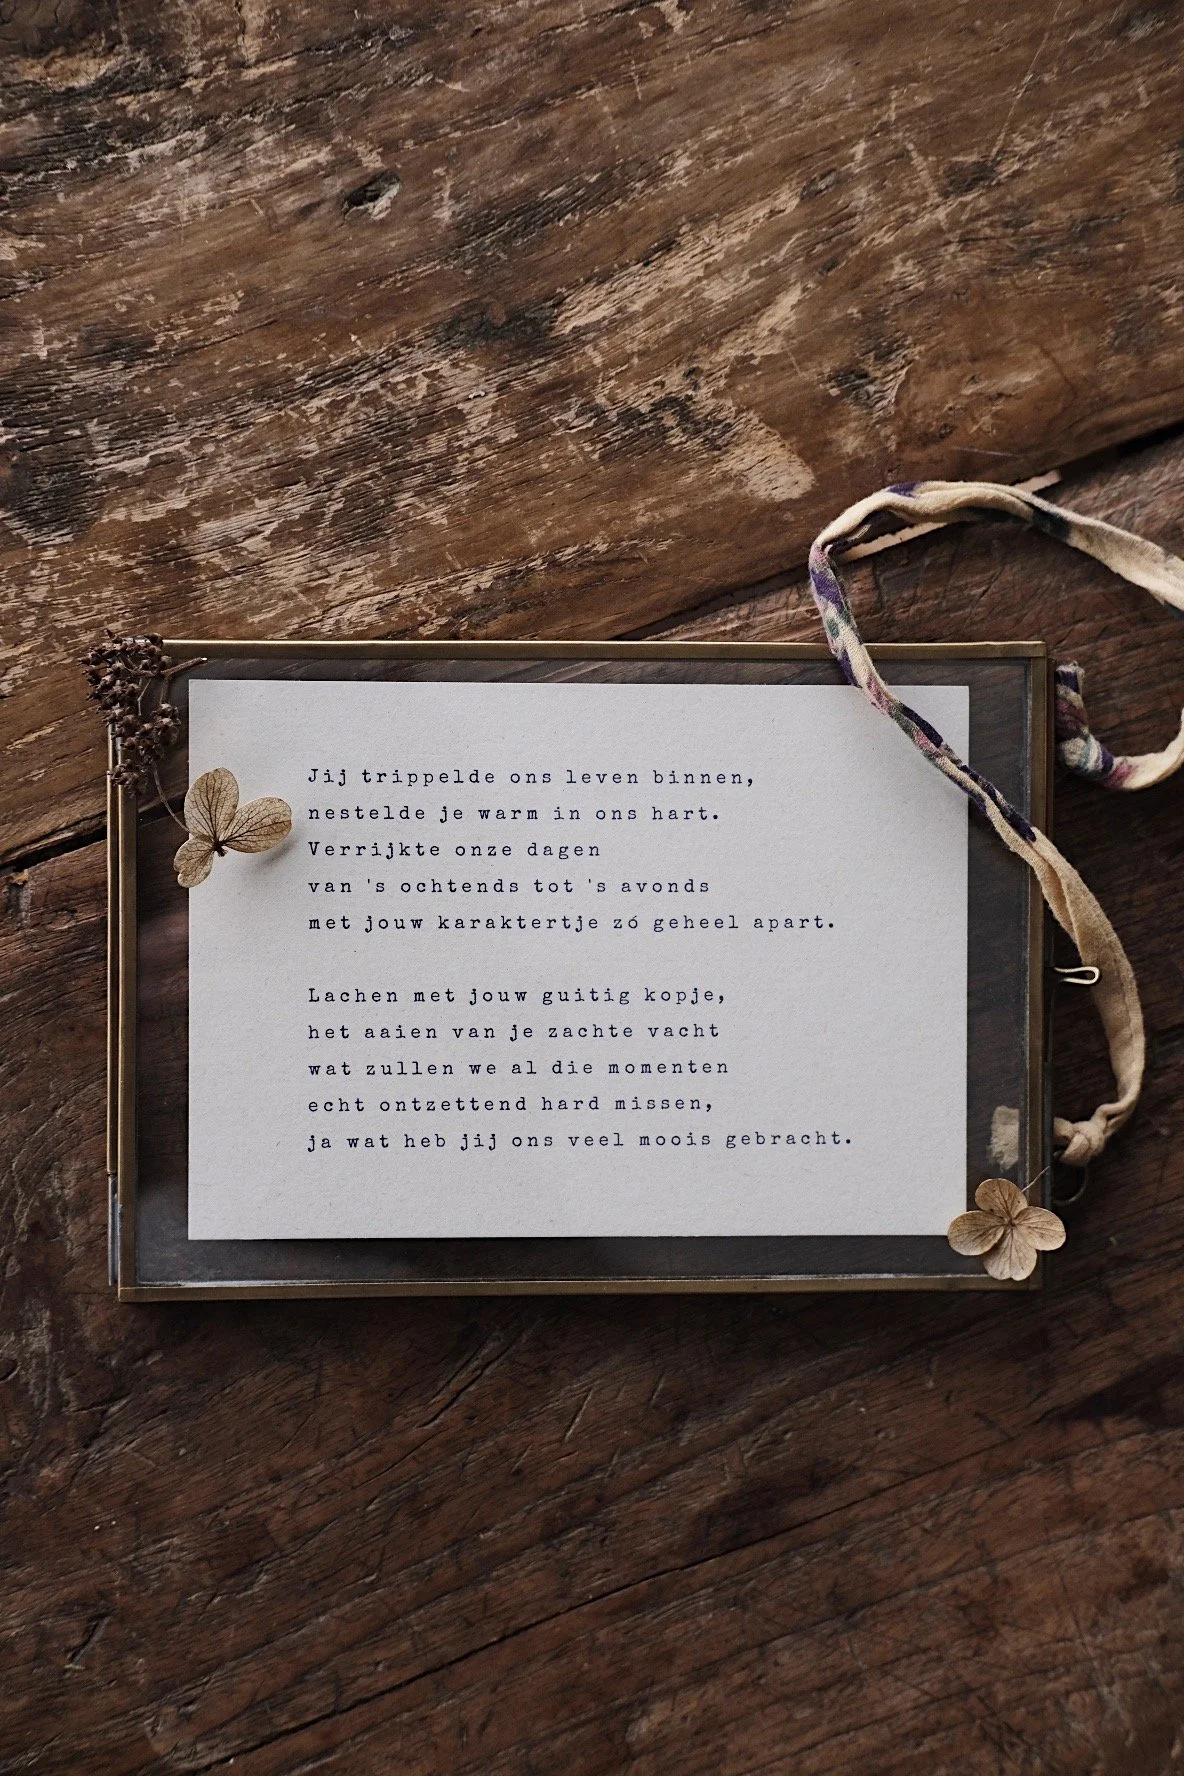 Jij trippelde ons leven binnen,
nestelde je warm in ons hart.
Verrijkte onze dagen
van 's ochtends tot 's avonds
met jouw karaktertje zó geheel apart.
Lachen met jouw guitig kopje,
het aaien van je zachte vacht
wat zullen we al die momenten
echt ontzettend hard missen,
ja wat heb jij ons veel moois gebracht.